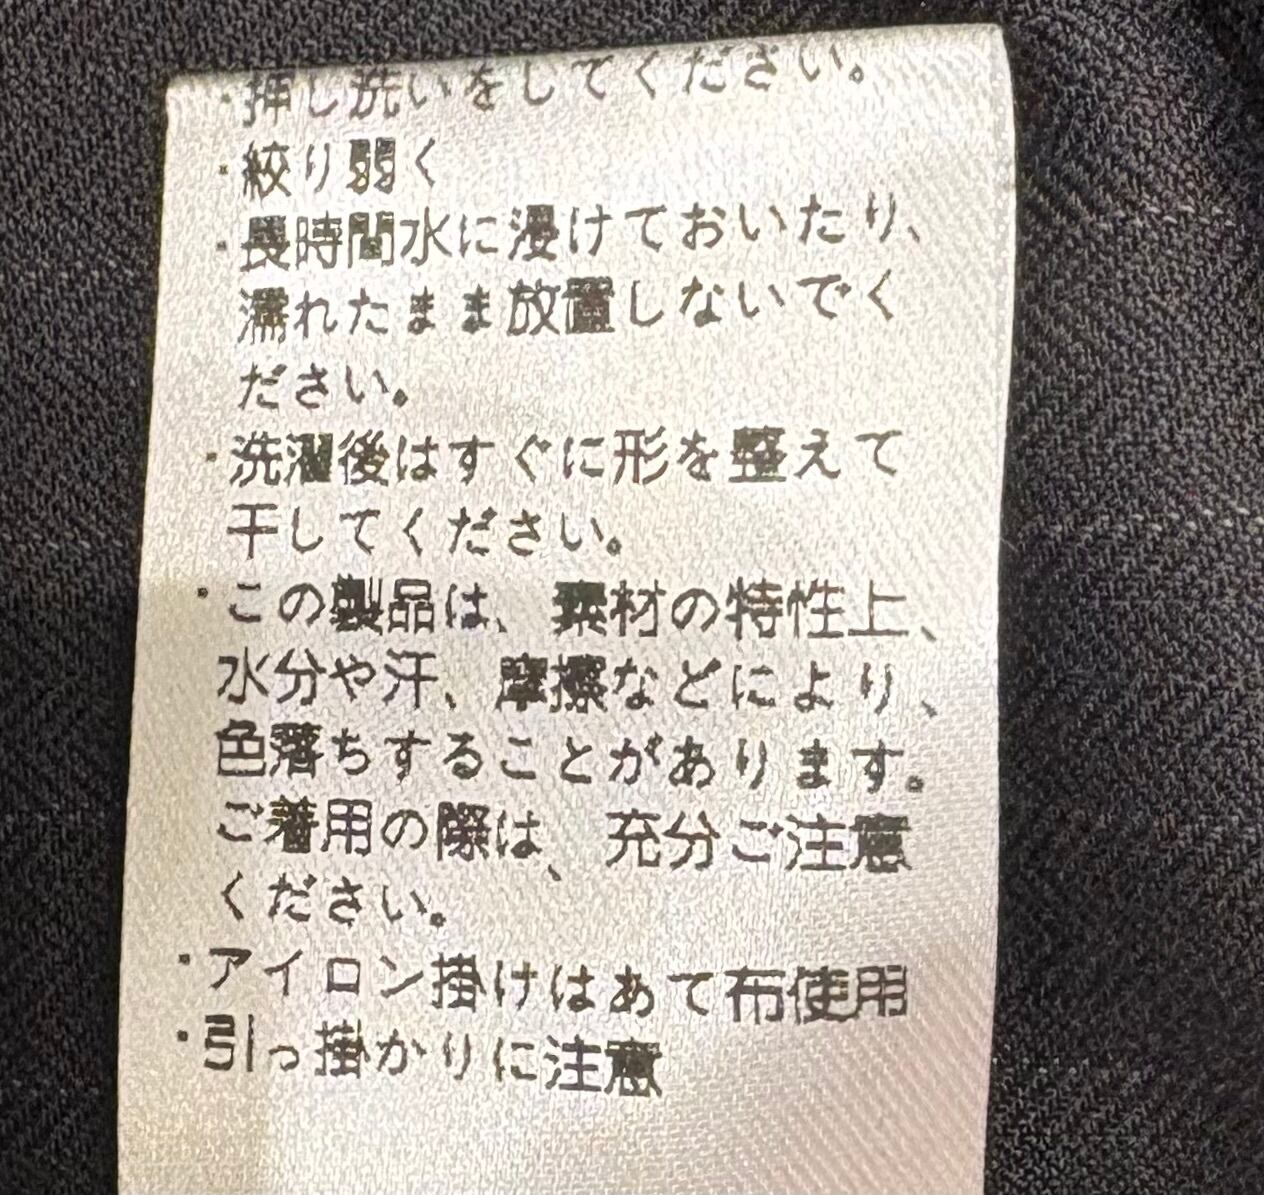 ・押し洗いをしてください。
・絞り弱く
・長時間水に浸けておいたり、
濡れたまま放置しないでく
ださい。
・洗濯後はすぐに形を整えて
干してください。
・この製品は、素材の特性上、
水分や汗、摩擦などにより、
色落ちすることがあります。
ご着用の際は、充分ご注意
ください。
・アイロン掛けはあて布使用
・引っ掛かりに注意